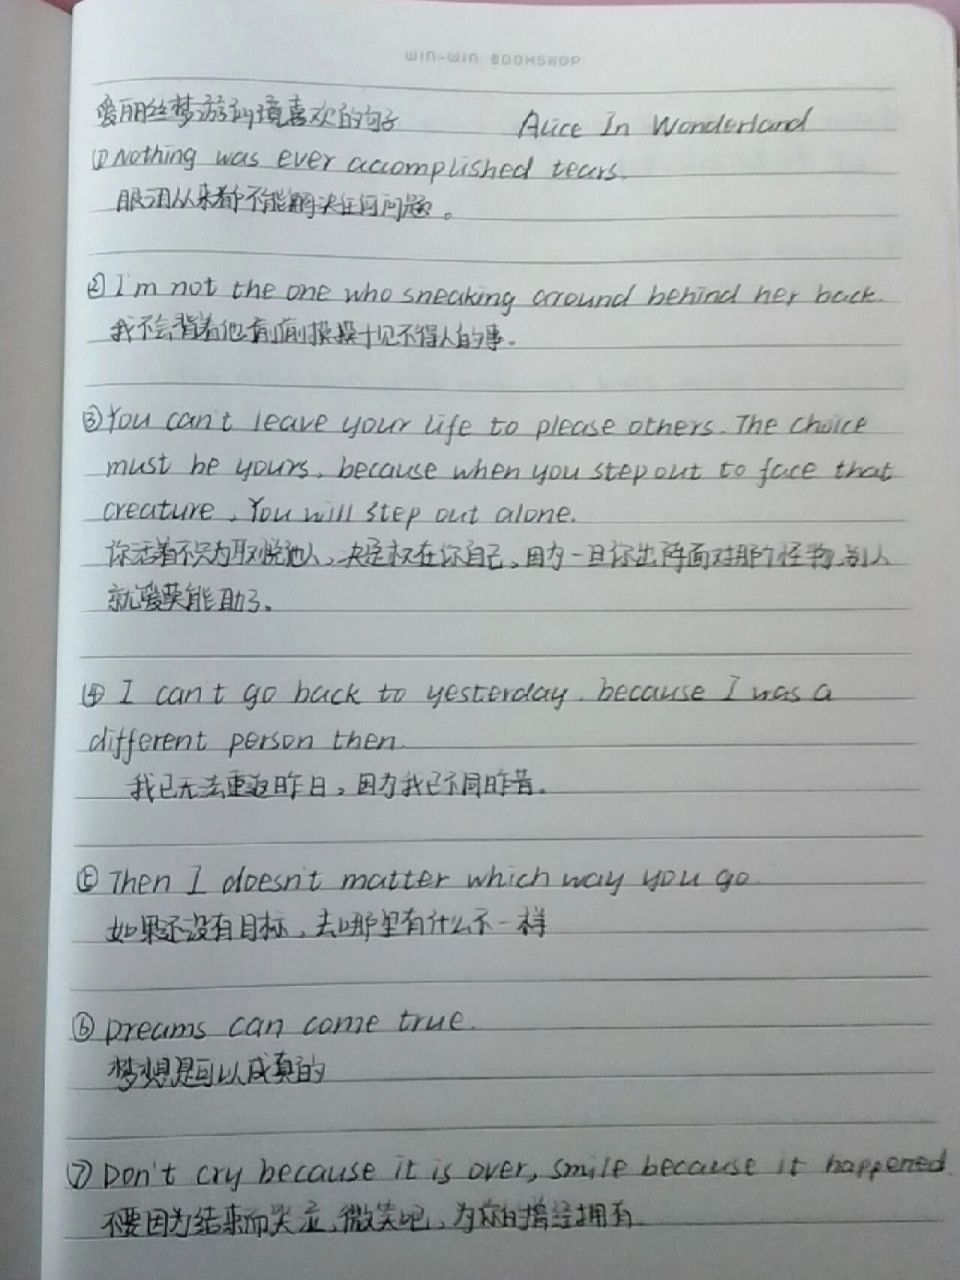 WIN-WIN BOOKSHOP
爱丽丝梦游仙境喜欢的句子 Alice In Wonderland
①Nothing was ever accomplished tears.
眼泪从来都不能解决任何问题。
②I'm not the one who sneaking arround behind her back.
我不会背着他偷偷摸摸干见不得人的事。
③You can't leave your life to please others. The choice
must be yours, because when you step out to face that
creature, You will step out alone.
你活着不只为取悦他人,决定权在你自己,因为一旦你出阵面对那个怪物,别人
就爱莫能助了。
④ I can't go back to yesterday. because I was a
different person then.
我已无法重返昨日,因为我已不同昨昔。
⑤ Then I doesn't matter which way you go
如果还没有目标,去哪里有什么不一样
⑥ Dreams can come true.
梦想是可以成真的
⑦ Don't cry because it is over, smile because it happened.
不要因为结束而哭泣,微笑吧,为你的曾经拥有